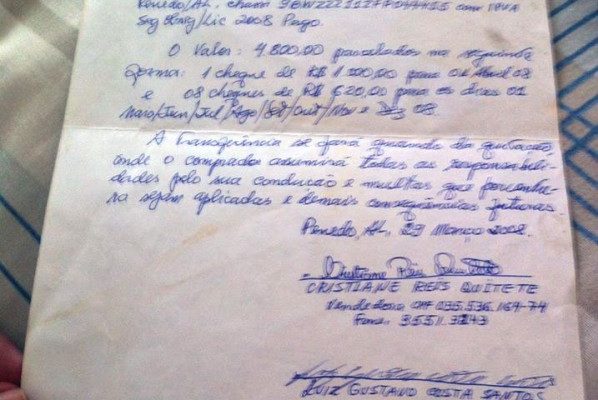 Penedo/AL, chassi 9BWZZZ11ZFP044415 com IPVA
Seg Obrig/Lic 2008 Pago.
O Valor: 4.800,00 parcelados na seguinte
forma: 1 cheque de R$ 1.000,00 para 01 Abril 08
e 08 cheques de R$ 620,00 para os dias 01
Maio/Jun/Jul/Ago/Set/Out/Nov e Dez 08.
A Transferência se fará quando da quitação,
onde o comprador assumirá todas as responsabili-
dades pelo sua condução e multas que porventu-
ra sejam aplicadas e demais consequências futuras.
Penedo, AL, 29 Março 2008.
CRISTIANE REIS QUITETE
Vendedora CPF 035.536.167-74
Fone: 35513243
LUIZ GUSTAVO COSTA SANTOS